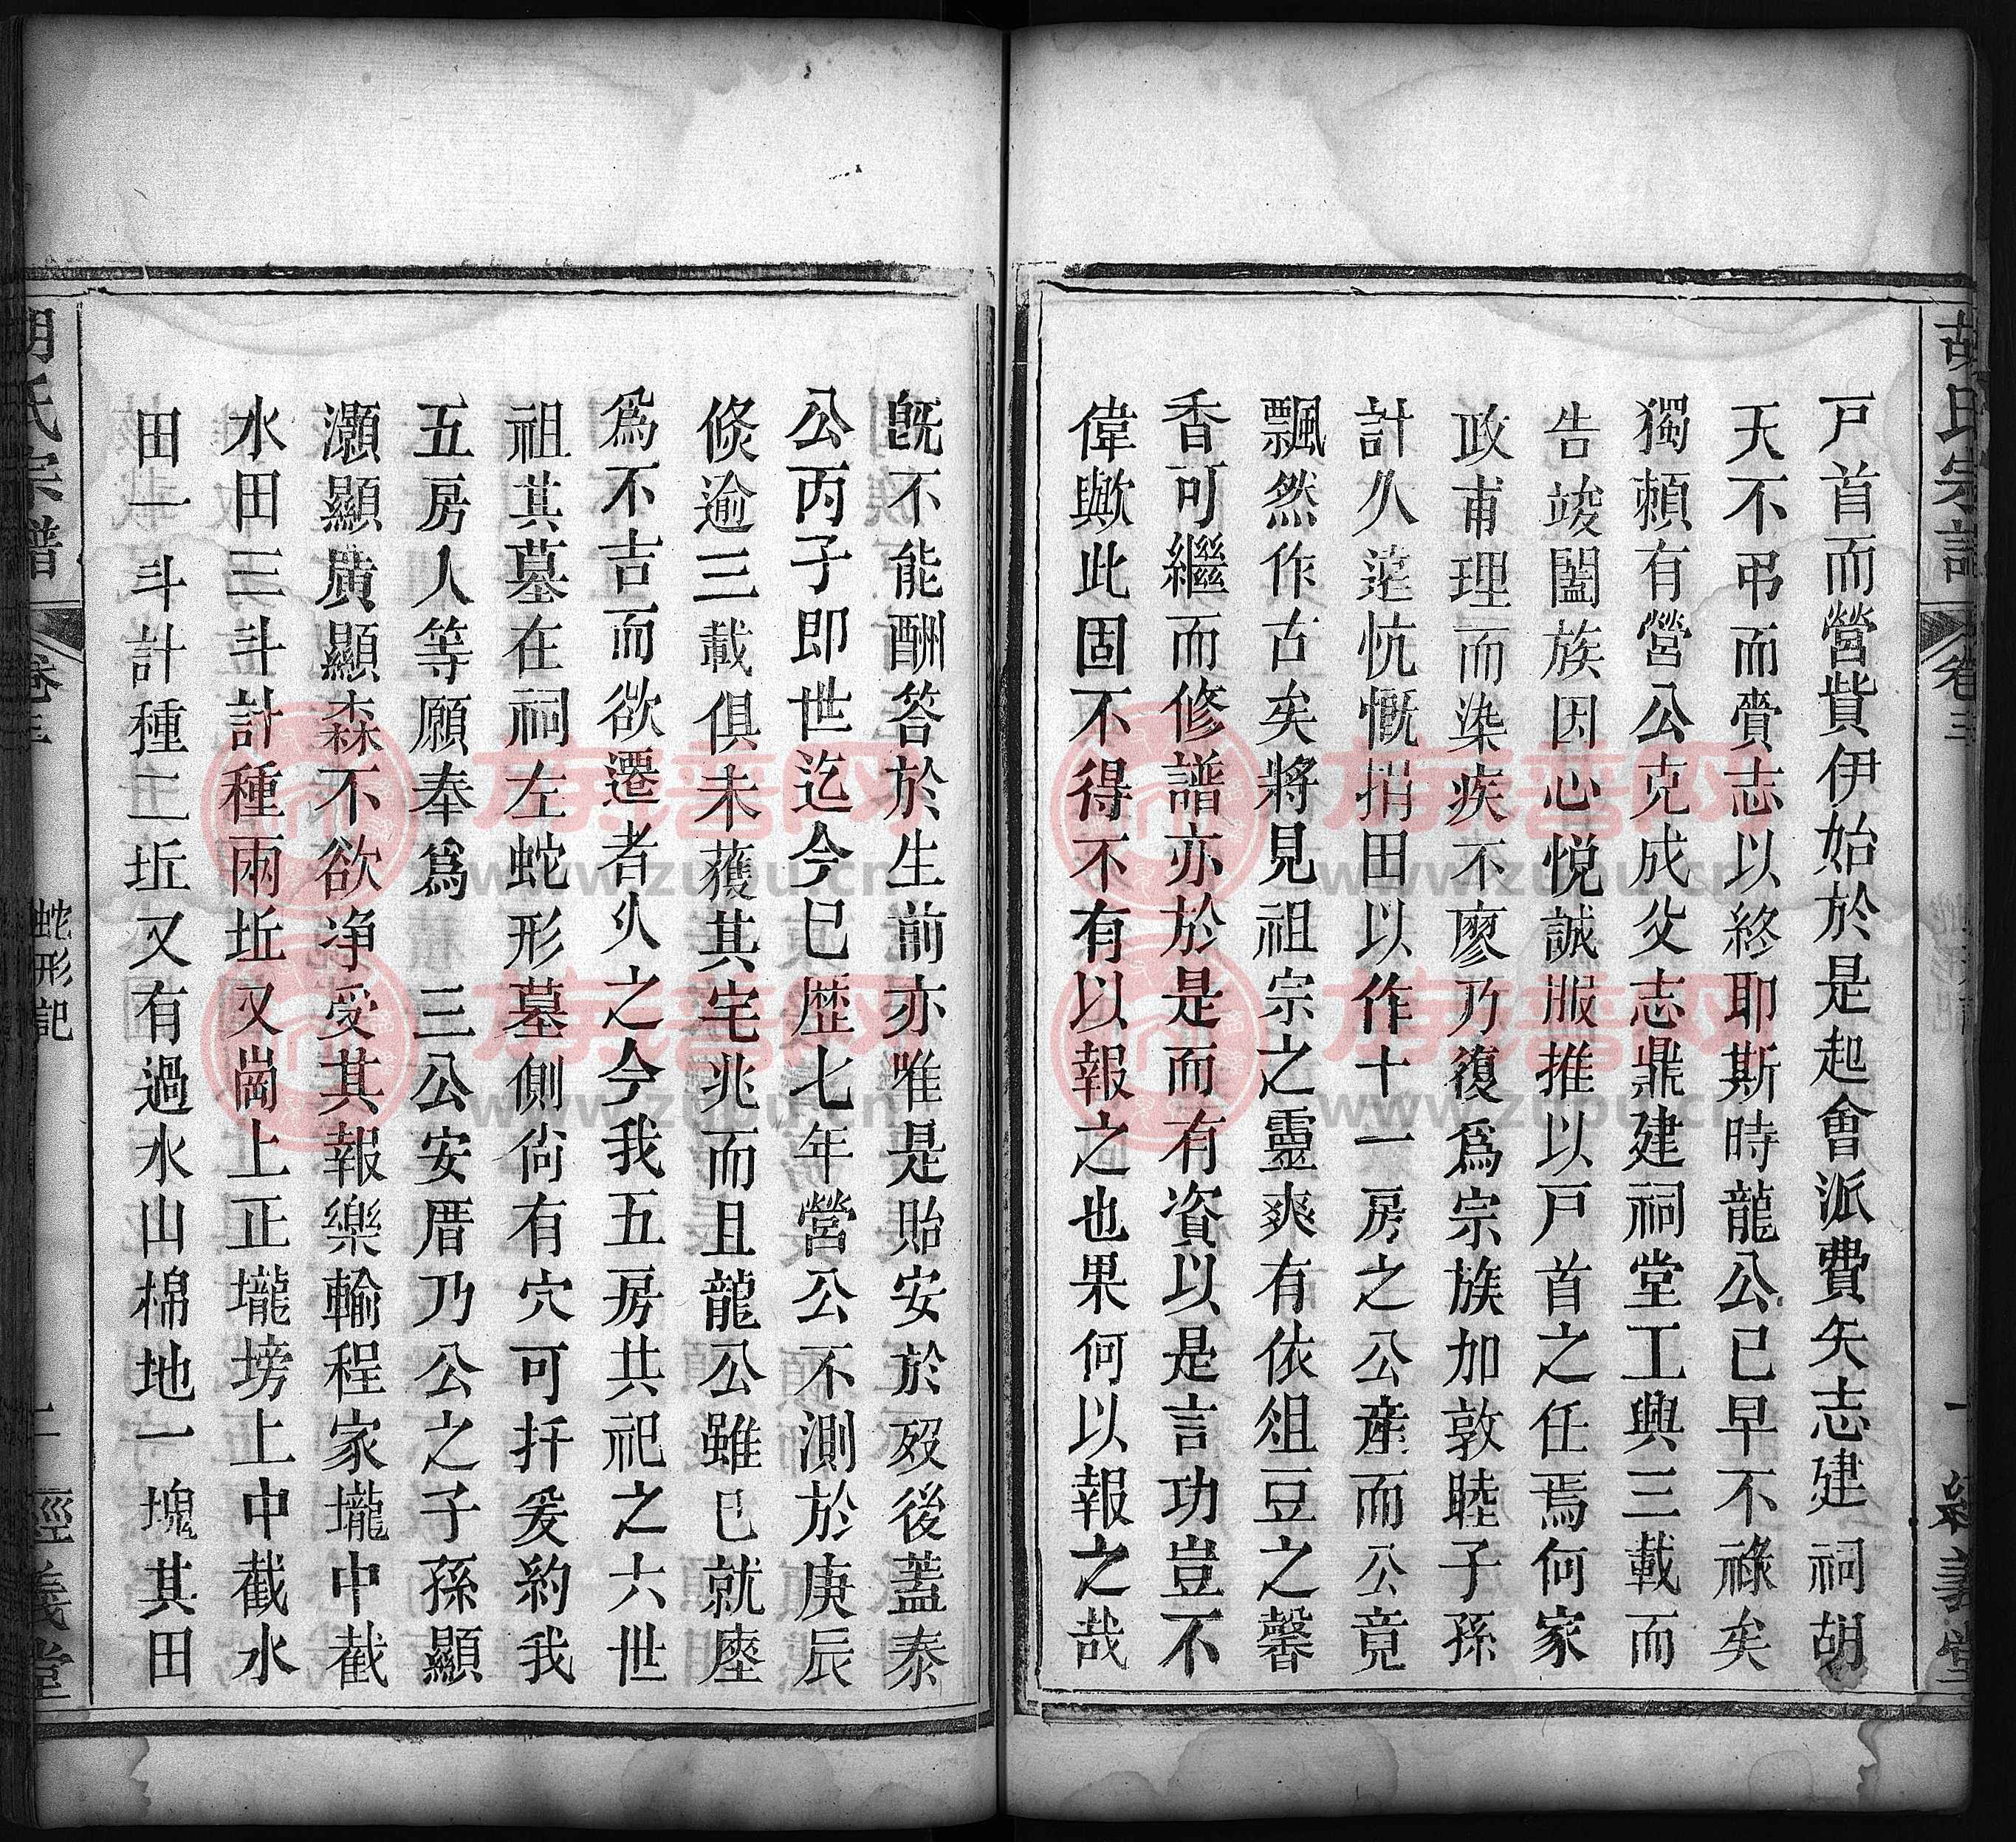 胡氏宗譜
卷三
一
經義堂
戸首而營貲伊始於是起會派費矢志建祠胡
天不弔而賫志以終耶斯時龍公已早不祿矣
獨賴有營公克成父志鼎建祠堂工興三載而
告竣闔族因心悅誠服推以戸首之任焉何家
政甫理而染疾不廖乃復爲宗族加敦睦子孫
計久遠慷慨捐田以作十一房之公産而公竟
飄然作古矣將見祖宗之靈爽有依俎豆之馨
香可繼而修譜亦於是而有資以是言功豈不
偉歟此固不得不有以報之也果何以報之哉
旣不能酬答於生前亦唯是貽安於歿後蓋泰
公丙子即世迄今巳歴七年營公不測於庚辰
倐逾三載俱未獲其宅兆而且龍公雖巳就窀
爲不吉而欲遷者乆之今我五房共祀之六世
祖其墓在祠左蛇形墓側尙有穴可扦爰約我
五房人等願奉爲 三公安厝乃公之子孫顯
灝顯廣顯森不欲净受其報樂輸程家壠中截
水田三斗計種兩坵又崗上正壠塝上中截水
田一斗計種三坵又有過水山棉地一塊其田
胡氏宗譜
卷三
蛇形記
二
經義堂
族譜网
www.zupu.cn
族譜网
www.zupu.cn
族譜网
www.zupu.cn
族譜网
www.zupu.cn